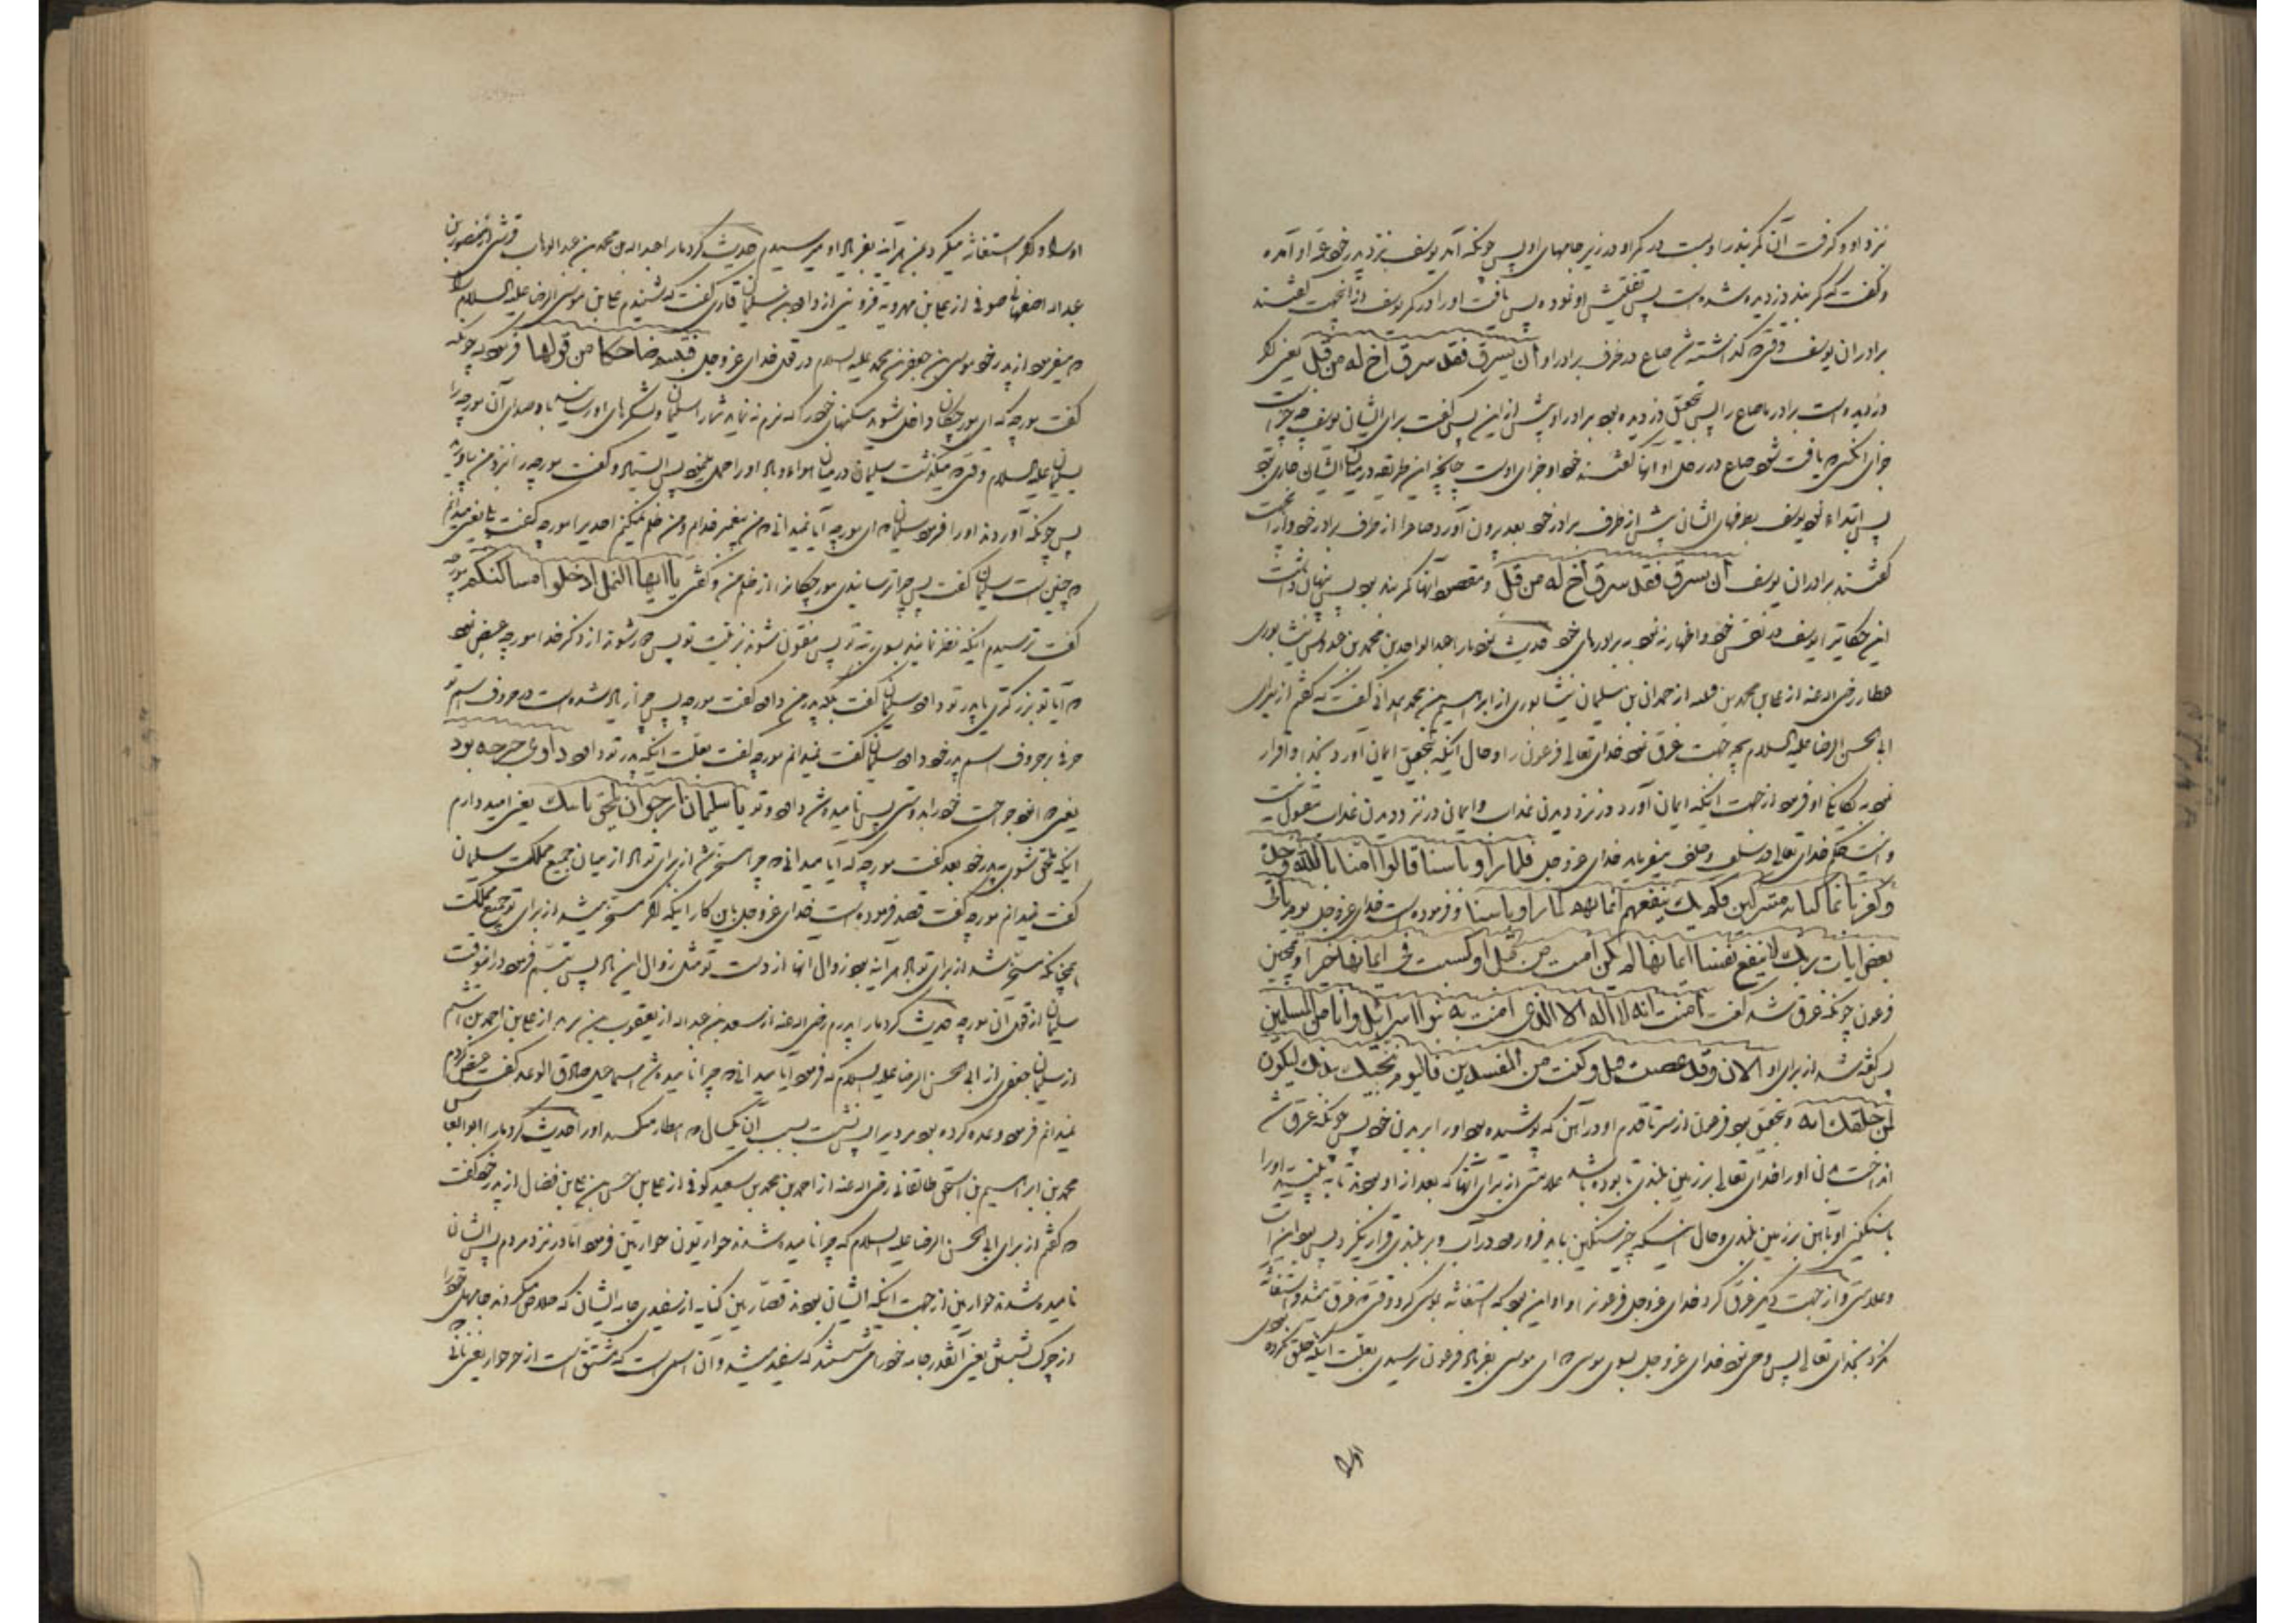 نزد او و گرفت آن کمربند را و بست در کمر او در زیر جامهای او پس چونکه آمد یوسف نزد پدر خود عمه او آمده
و گفت که کمربند دزدیده شده است پس تفتیش او نموده پس یافت او را در کمر یوسف از آنجهت گفتند
برادران یوسف وقتی که گذاشته شد صاع در ظرف برادر او ان یسرق فقد سرق اخ له من قبل یعنی اگر
دزدیده است برادر ما صاع را پس بتحقیق دزدیده بود برادر او پیش از این پس گفت برای ایشان یوسف که چیست
جزای آنکسی که یافت شود صاع در رحل او آنها گفتند خود او جزای اوست چنانچه این طریقه در میان ایشان جاری بود
پس ابتداء نمود یوسف بظرفهای ایشان پیش از ظرف برادر خود بعد بیرون آورد صاع را از ظرف برادر خود و از آنجهت
گفتند برادران یوسف ان یسرق فقد سرق اخ له من قبل و مقصود آنها کمربند بود پس پنهان داشت
این حکایت را یوسف در نفس خود و اظهار ننمود به برادرهای خود حدیث نمود ما را عبدالواحد بن محمد بن عبدوس نیشابوری
عطار رضی الله عنه از علی بن محمد بن قتیبه از حمدان بن سلیمان نیشابوری از ابراهیم بن محمد همدانی گفت که گفتم از برای
ابی الحسن الرضا علیه السلام بچه جهت غرق نمود خدای تعالی فرعون را و حال آنکه بتحقیق ایمان آورد بخدا و اقرار
نمود به یگانگی او فرمود از جهت اینکه ایمان آورد در نزد دیدن عذاب و ایمان در نزد دیدن عذاب مقبول نیست
و اینست حکم خدای تعالی در سلف و خلف میفرماید خدای عز و جل فلما راوا باسنا قالوا امنا بالله وحده
وکفرنا بما کنا به مشرکین فلم یک ینفعهم ایمانهم لما راوا باسنا و فرموده است خدای عز و جل یوم یاتی
بعض ایات ربک لا ینفع نفسا ایمانها لم تکن امنت من قبل او کسبت فی ایمانها خیرا و همچنین
فرعون چونکه غرق شد گفت امنت انه لا اله الا الذی امنت به بنوا اسرائیل وانا من المسلمین
پس گفته شد از برای او الان وقد عصیت قبل وکنت من المفسدین فالیوم ننجیک ببدنک لتکون
لمن خلفک ایه و بتحقیق بود فرعون از سر تا قدم او در آهن که پوشیده بود او را بر بدن خود پس چونکه غرق شد
انداخت بدن او را خدای تعالی بر زمین بلندی تا بوده باشد علامتی از برای آنها که بعد از او بودند تا به بینند او را
با سنگینی او بآهن بر زمین بلندی و حال اینکه چیز سنگین باید فرو رود در آب و بر بلندی قرار نگیرد پس بود این آیت
و علامتی و از جهت دیگر غرق کرد خدای عز و جل فرعون را و او این بود که استغاثه بموسی کرد وقتی که غرق میشد و استغاثه
نکرد بخدای تعالی پس وحی نمود خدای عز و جل بسوی موسی که ای موسی بفریاد فرعون نرسیدی بعلت اینکه خلق نکرده بودی
او را
او را و اگر استغاثه میکرد بمن هر آینه بفریاد او میرسیدم حدیث کرد ما را عبدالله بن محمد بن عبدالوهاب قرشی از منصور بن
عبدالله اصفهانی صوفی از علی بن مهرویه قزوینی از داود بن سلیمان قاری گفت که شنیدم علی بن موسی الرضا علیه السلام را
که میفرمود از پدر خود موسی بن جعفر بن محمد علیه السلام در قول خدای عز و جل فتبسم ضاحکا من قولها فرمود که چونکه
گفت مورچه که ای مورچگان داخل شوید مسکنهای خود را که نرم ننماید شما را سلیمان و لشکرهای او رسانید باد صدای آن مورچه را
بسلیمان علیه السلام وقتی که میگذشت سلیمان در میان هواء و باد او را حمل مینمود پس ایستاد و گفت مورچه را نزد من بیاورید
پس چونکه آوردند او را فرمود سلیمان که ای مورچه آیا نمیدانی که من پیغمبر خدایم و من ظلم نمیکنم احدی را مورچه گفت بلی یعنی میدانم
که چنین است سلیمان گفت پس چرا ترسانیدی مورچگان را از ظلم من و گفتی یا ایها النمل ادخلوا مساکنکم مورچه
گفت ترسیدم اینکه نظر نمایند بسوی زینت تو پس مفتون شوند بزینت تو پس دور شوند از ذکر خدا مورچه عرض نمود
که آیا تو بزرگتری یا پدر تو داود سلیمان گفت بلکه پدر من داود گفت مورچه پس چرا زیاد شده است در حروف اسم تو
حرفی بر حروف اسم پدر خود داود سلیمان گفت نمیدانم مورچه گفت بعلت اینکه پدر تو داود داوی جرحه بود
یعنی دوا نمود جراحت خود را بدوستی پس نامیده شد داود و تو یا سلیمان ارجو ان تلحق بابیک یعنی امید دارم
اینکه ملحق شوی به پدر خود بعد گفت مورچه که آیا میدانی که چرا مسخر شد از برای تو باد از میان جمیع مملکت سلیمان
گفت نمیدانم مورچه گفت قصد فرموده است خدای عز و جل باین کار اینکه اگر مسخر میشد از برای تو جمیع مملکت
همچنانکه مسخر شد از برای تو باد هر آینه بود زوال آنها از دست تو مثل زوال این باد پس تبسم فرمود در آنوقت
سلیمان از قول آن مورچه حدیث کرد ما را پدرم رضی الله عنه از سعد بن عبدالله از یعقوب بن یزید از علی بن احمد بن اشیم
از سلیمان جعفری از ابی الحسن الرضا علیه السلام که فرمود آیا میدانی که چرا نامیده شد اسماعیل صادق الوعد گفت عرض کردم
نمیدانم فرمود وعده کرده بود مردی را پس نشست بسبب آن یکسال که انتظار میکشید او را حدیث کرد ما را ابوالعباس
محمد بن ابراهیم بن اسحق طالقانی رضی الله عنه از احمد بن محمد بن سعید کوفی از علی بن حسن بن علی بن فضال از پدر خود گفت
که گفتم از برای ابی الحسن الرضا علیه السلام که چرا نامیده شدند حواریون حواریین فرمود اما در نزد مردم پس ایشان
نامیده شدند حواریین از جهت اینکه ایشان بودند قصارین کنایه از سفیدی جامه ایشان که خلاص میکردند جامهای خود را
از چرک بشستن یعنی آنقدر جامه خود را می شستند که سفید میشد و آن اسمی است که مشتق است از حوار یعنی نانی که